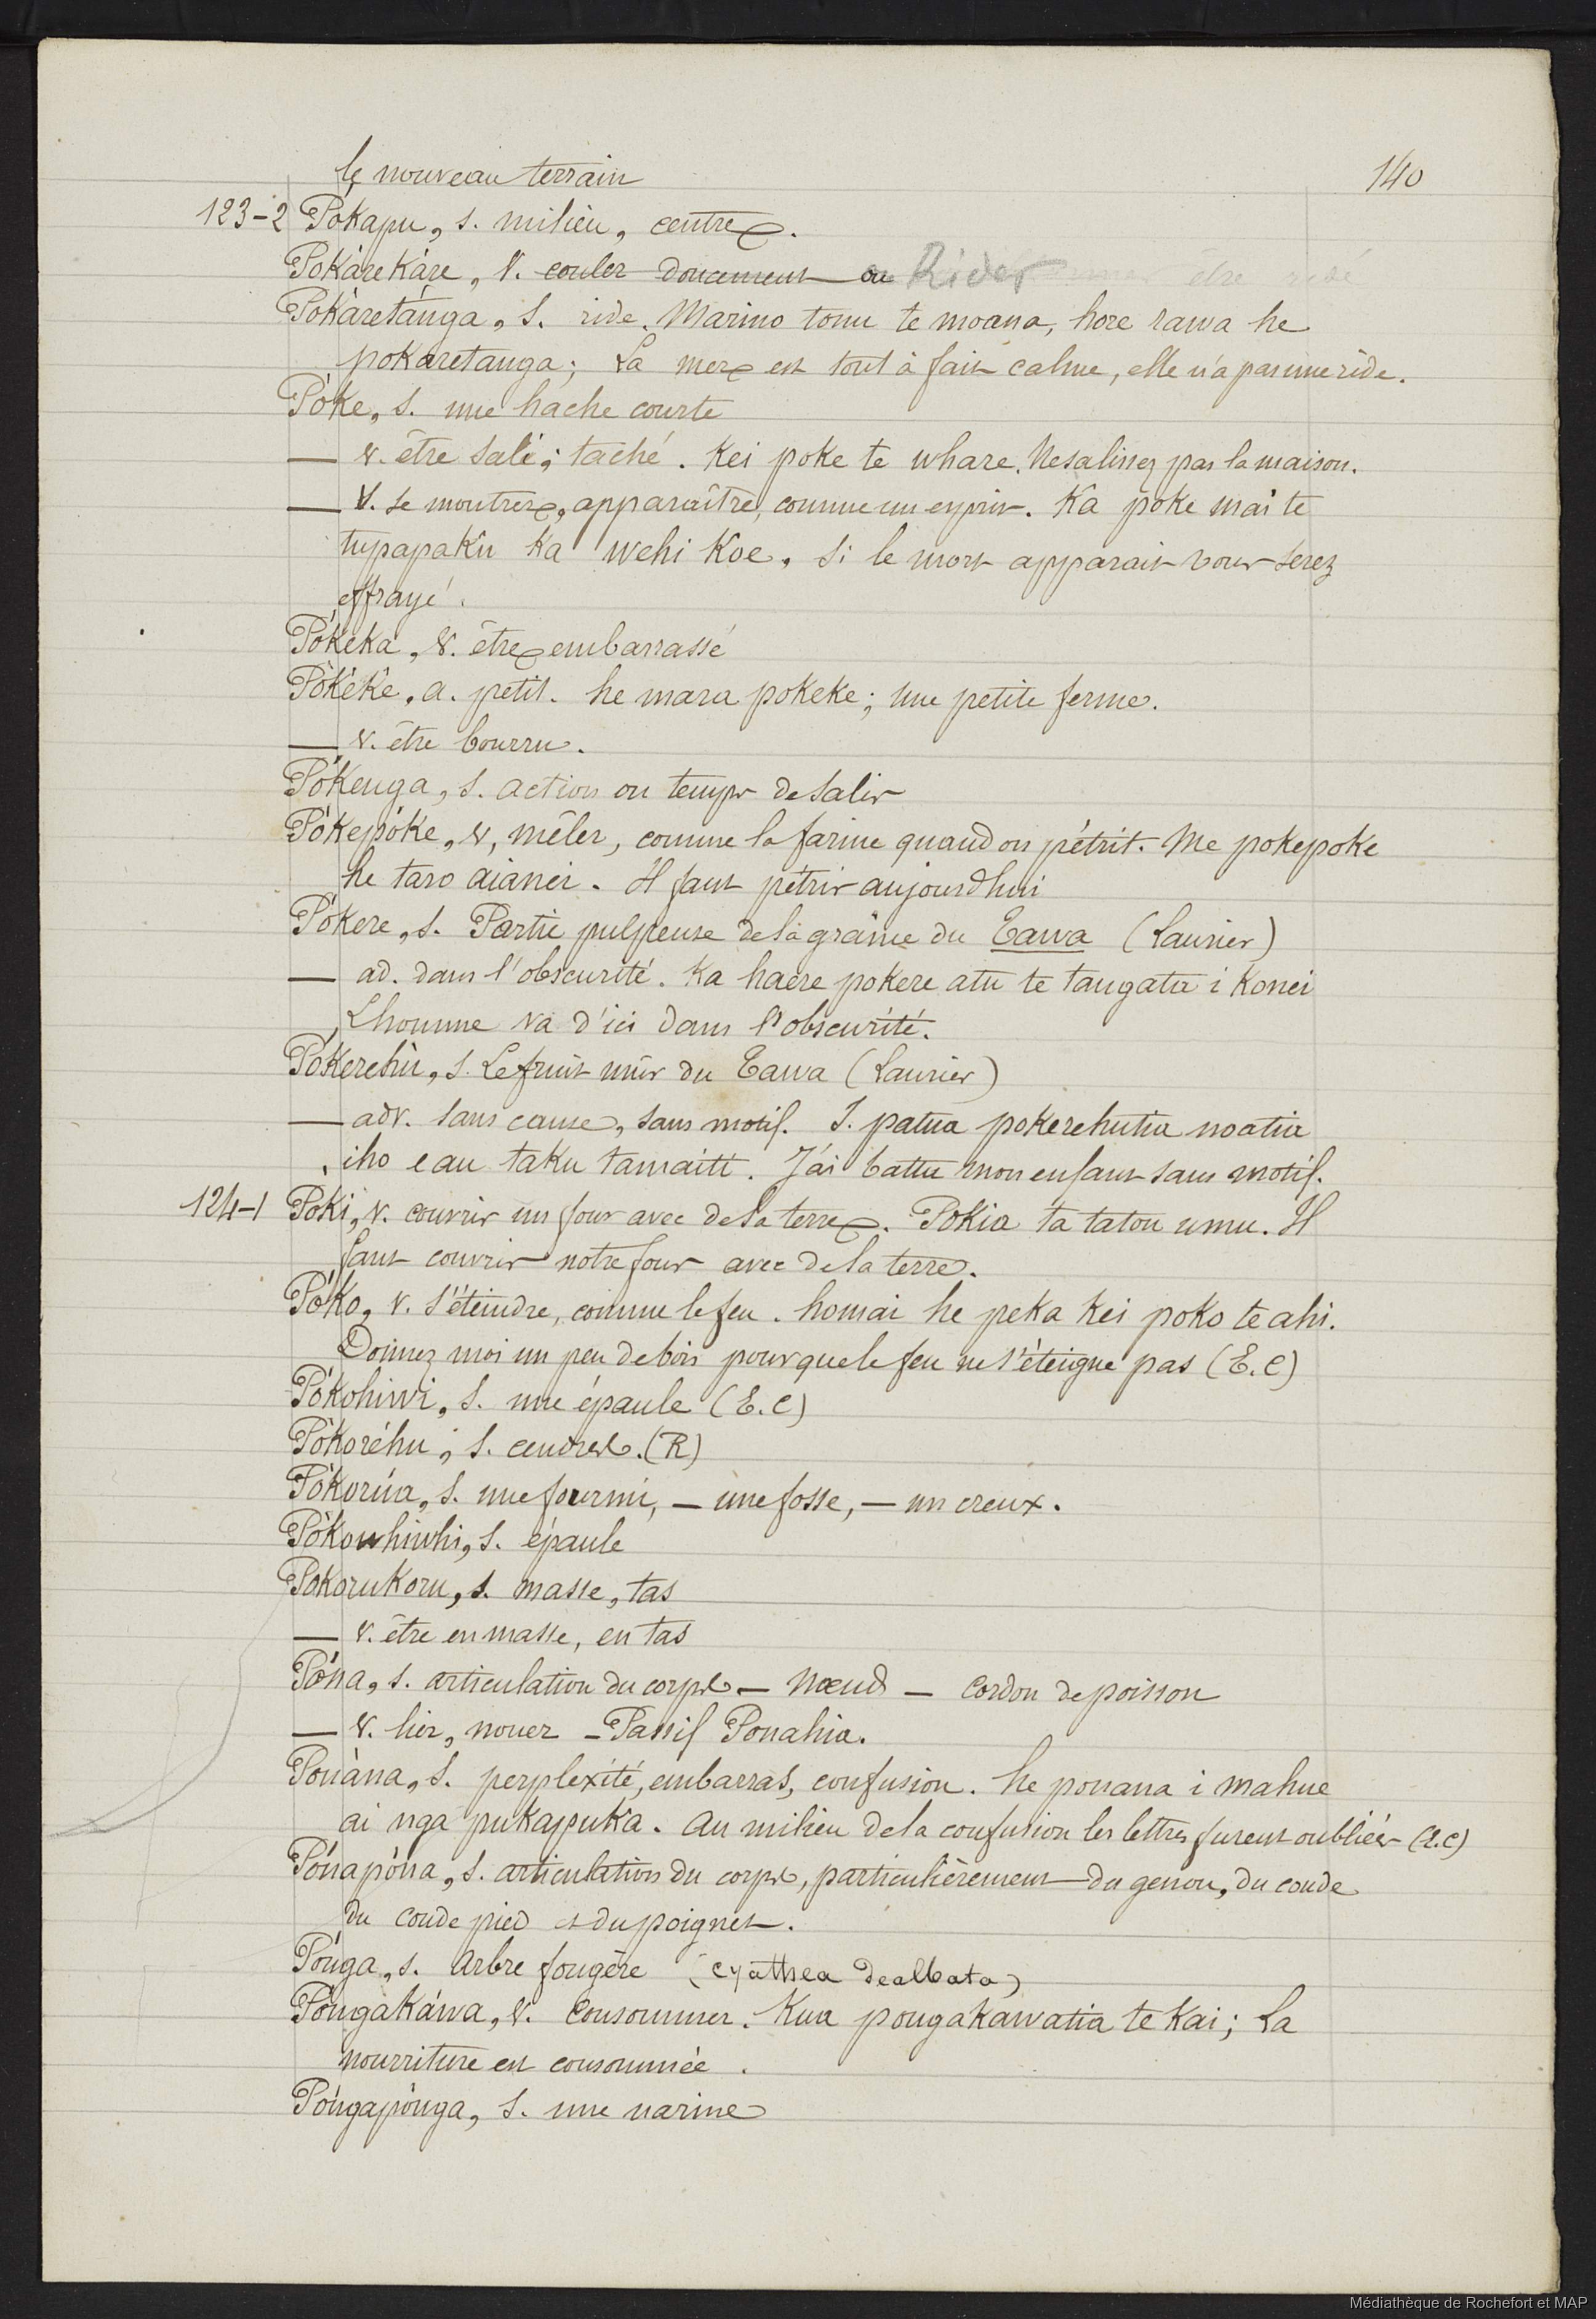 le nouveau terrain
140
123-2 Pókapu, s. milieu, centre.
Pokàrekàre, V. couler doucement ou Rider être ridé
Pokàretánga, S. ride. Marino tonu te moana, hore rawa he
pokaretanga; La mer est tout à fait calme, elle n'a pas une ride.
Póke, S. une hache courte
— v. être sali; taché. Kei poke te whare. Ne salissez pas la maison.
— V. se montrer, apparaître, comme un esprit. Ka poke mai te
tupapaku ka wehi koe. Si le mort apparait vous serez
effrayé.
Pókeka, v. être embarrassé
Pòkéke, a. petit. he mara pokeke; une petite ferme.
— v. être bourru.
Pókenga, S. action ou temps de salir
Pókepóke, v, mêler, comme la farine quand on pétrit. Me pokepoke
he taro aianei. Il faut pétrir aujourdhui
Pókere, S. Partie pulpeuse de la graine du Tawa (Laurier)
— ad. dans l'obscurité. Ka haere pokere atu te tangata i konei
Lhomme va d'ici dans l'obscurité.
Pókerehù, S. Le fruit mûr du Tawa (Laurier)
— adv. sans cause, sans motif. I. patua pokerehutia noatia
iho e au taku tamaiti. J'ai battu mon enfant sans motif.
124-1 Poki, v. couvrir un four avec de la terre. Pokia ta tatou umu. Il
faut couvrir notre four avec de la terre.
Póko, v. s'éteindre, comme le feu. homai he peka kei poko te ahi.
Donnez moi un peu de bois pour que le feu ne s'éteigne pas (E.C)
Pókohiwi, S. une épaule (E.C)
Pòkoréhu, S. cendres. (R)
Pókorúa, S. une fourmi, — une fosse, — un creux.
Pòkowhiwhi, S. épaule
Pokorukoru, s. masse, tas
— v. être en masse, en tas
Póna, s. articulation du corps — Nœud — cordon de poisson
— v. lier, nouer — Passif Ponahia.
Ponàna, S. perplexité, embarras, confusion. he ponana i mahue
ai nga pukapuka. Au milieu de la confusion les lettres furent oubliées (E.C)
Pónapóna, S. articulation du corps, particulièrement du genou, du coude
du coude pied et du poignet.
Pónga, s. Arbre fougère (cyathea dealbata)
Póngakáwa, v. Consommer. Kua pongakawatia te kai; La
nourriture est consommée.
Póngapònga, S. une narine
Médiathèque de Rochefort et MAP